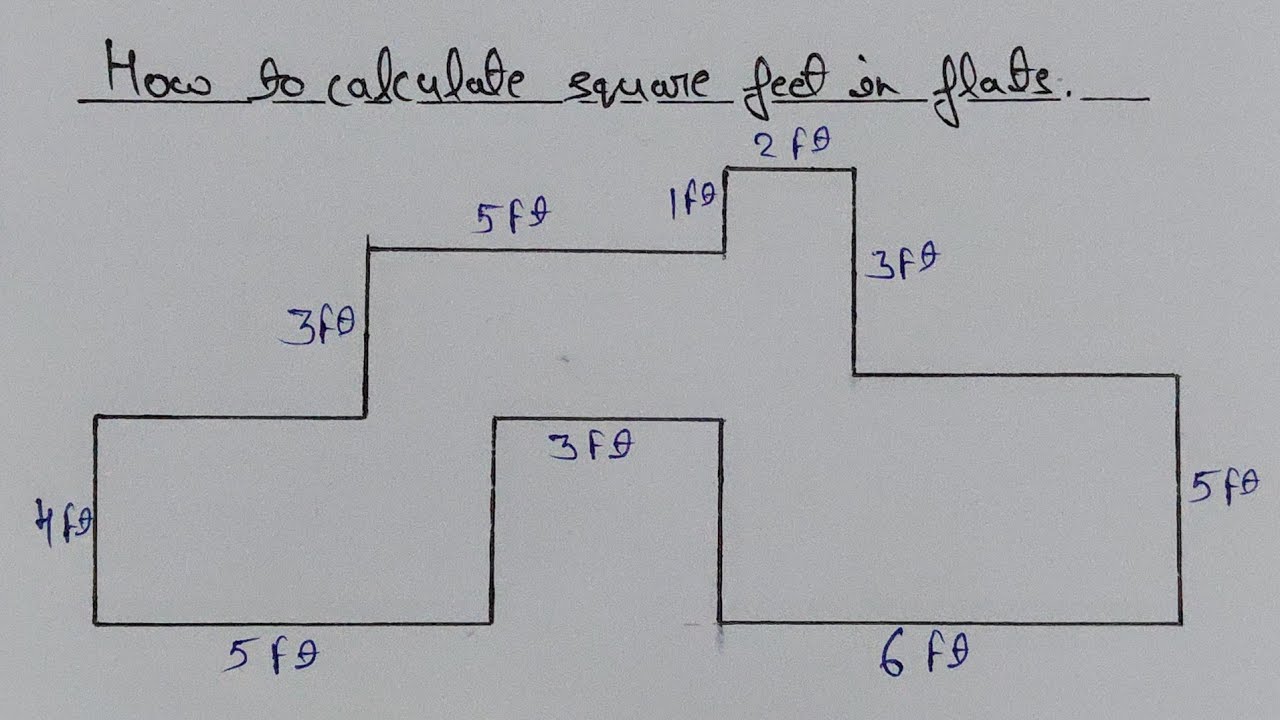 How to calculate square feet in flats.
2 ft
1ft
5ft
3ft
3ft
3ft
4ft
5ft
5ft
6ft